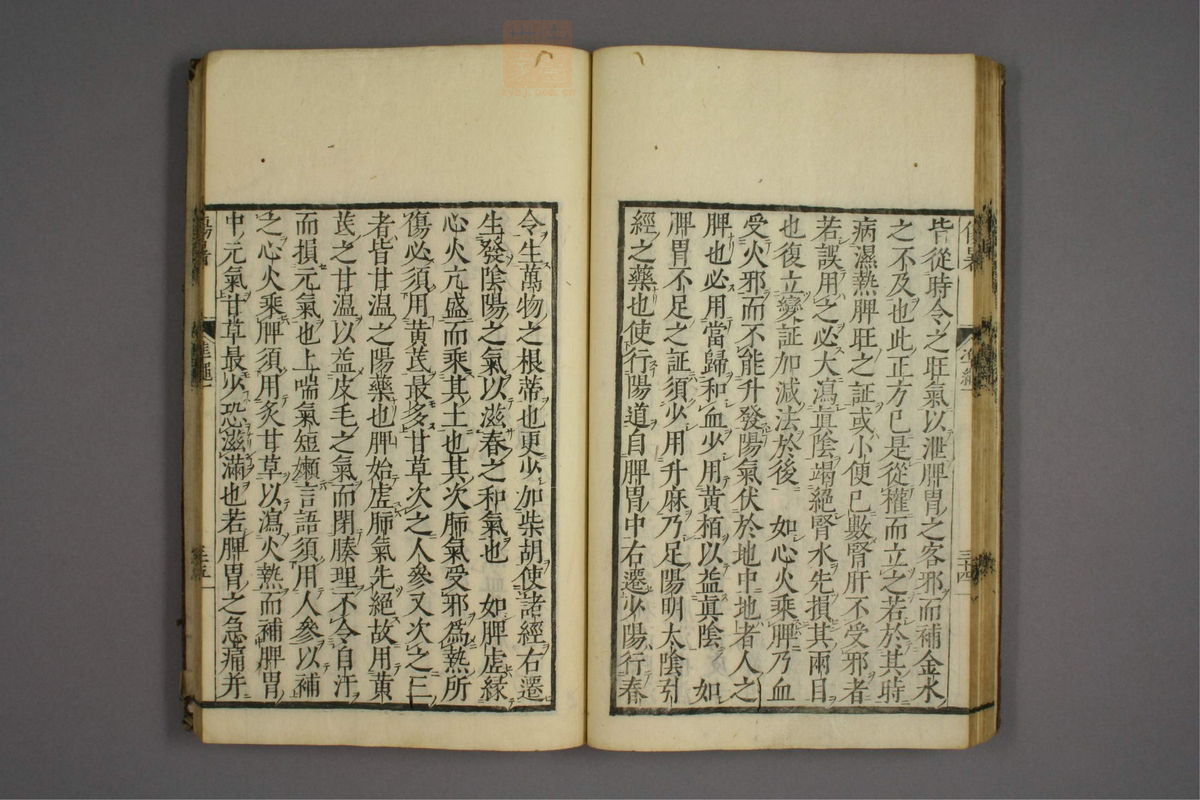 皆從時令之旺氣以泄脾胃之客邪而補金水
之不及也此正方已是從權而立之若於其時
病濕熱脾旺之証或小便已數腎肝不受邪者
若誤用之必大瀉眞陰竭絕腎水先損其兩目
也復立變証加減法於後　如心火乘脾乃血
受火邪而不能升發陽氣伏於地中地者人之
脾也必用當歸和血少用黄栢以益眞陰　如
脾胃不足之証須少用升麻乃足陽明太陰引
經之藥也使行陽道自脾胃中右遷少陽行春
三十四
令生萬物之根蒂也更少加柴胡使諸經右遷
生發陰陽之氣以滋春之和氣也　如脾虛緣
心火亢盛而乘其土也其次肺氣受邪爲熱所
傷必須用黄芪最多甘草次之人參又次之三
者皆甘温之陽藥也脾始虛肺氣先絕故用黄
芪之甘温以益皮毛之氣而閉腠理不令自汗
而損元氣也上喘氣短嬾言語須用人參以補
之心火乘脾須用炙甘草以瀉火熱而補脾胃
中元氣甘草最少恐滋滿也若脾胃之急痛并
傷暑
準繩
三十五